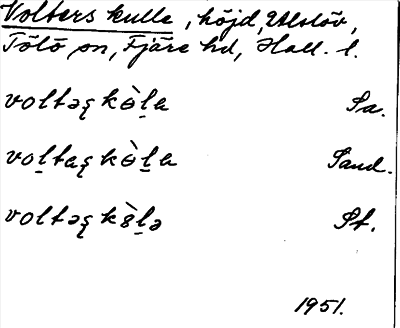 Volters kulle, höjd, Ålstöv,
Tölö sn, Fjäre hd, Hall. l.
voltəʂ kɵ̀ḻa Sa.
voḻtaʂ kɵ̀ḻa Sand.
voltəʂ kɵ̀ḻə St.
1951.